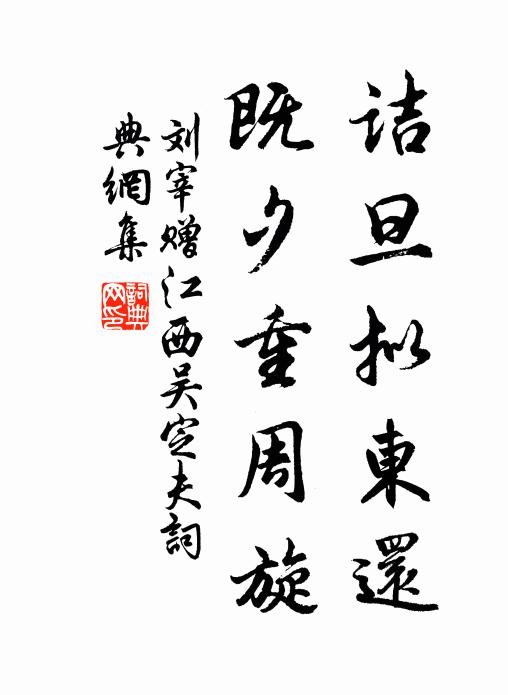 诘旦拟東還
既夕重周旋
刘宰赠江西吴定夫詞
典網集
詞典網印